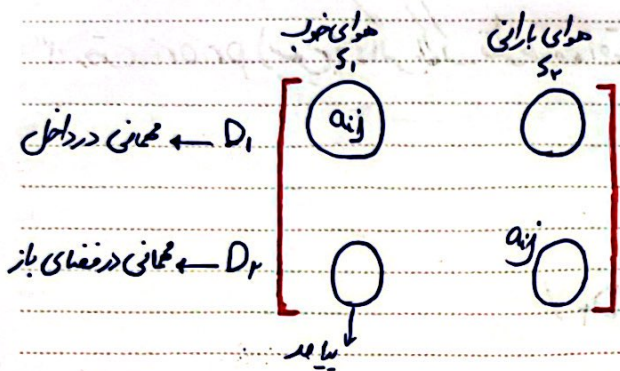 هوای خوب هوای بارانی
S₁ S₂
D₁ ← مهمانی در داخل
aij
D₂ ← مهمانی در فضای باز
aij
پیامد